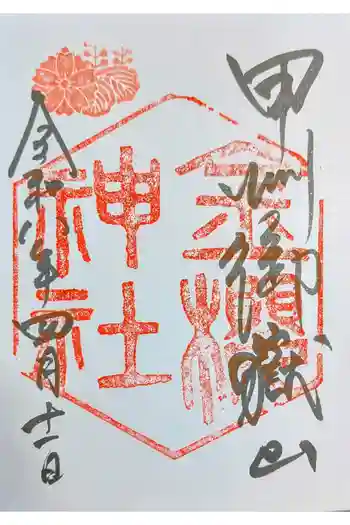 甲州御嶽山
金櫻神社
令和八年四月十一日